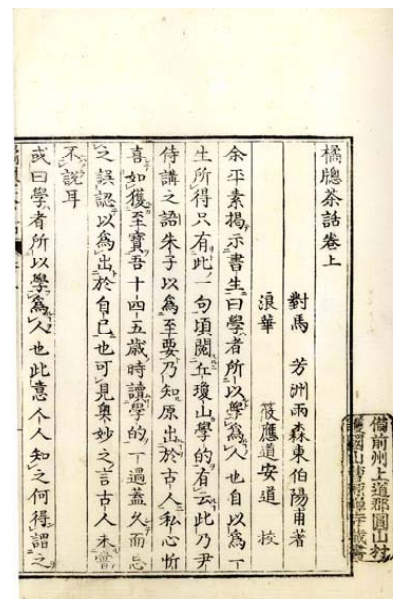 橘牕茶話卷上
對馬　芳洲雨森東伯陽甫著
浪華　筱應道安道　校
余平素揭示書生曰學者所以學爲人也自以爲一
生所得只有此一句頃閱丘瓊山學的有云此乃尹
侍講之語朱子以爲至要乃知原出於古人私心忻
喜如獲至寶吾十四五歲時讀學的一過蓋久而忘
之誤認以爲出於自己也可見奧妙之言古人未嘗
不說耳
或曰學者所以學爲人也此意个人知之何得謂之
備前州上道郡圓山村
護國山曹源禪寺藏書